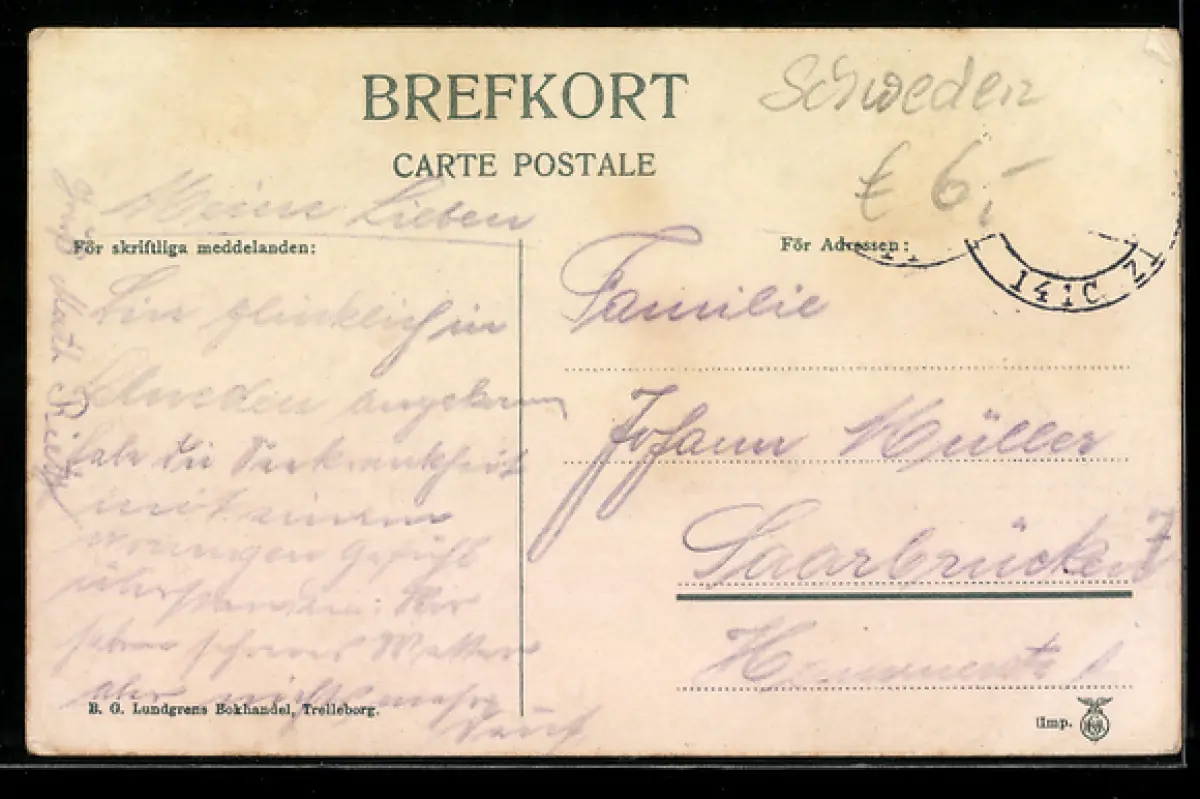 BREFKORT
CARTE POSTALE
Schweden
£ 6,-
Meine Lieben
För skriftliga meddelanden:
För Adressen:
141C 21
Bin glücklich in
Schweden angekomm
habe die Seekrankheit
mit einem
Gefühl
überstanden: Wir
haben schönes Wetter
aber nicht
Familie
Johann Müller
Saarbrücken
B. G. Lundgrens Bokhandel, Trelleborg.
(Imp.